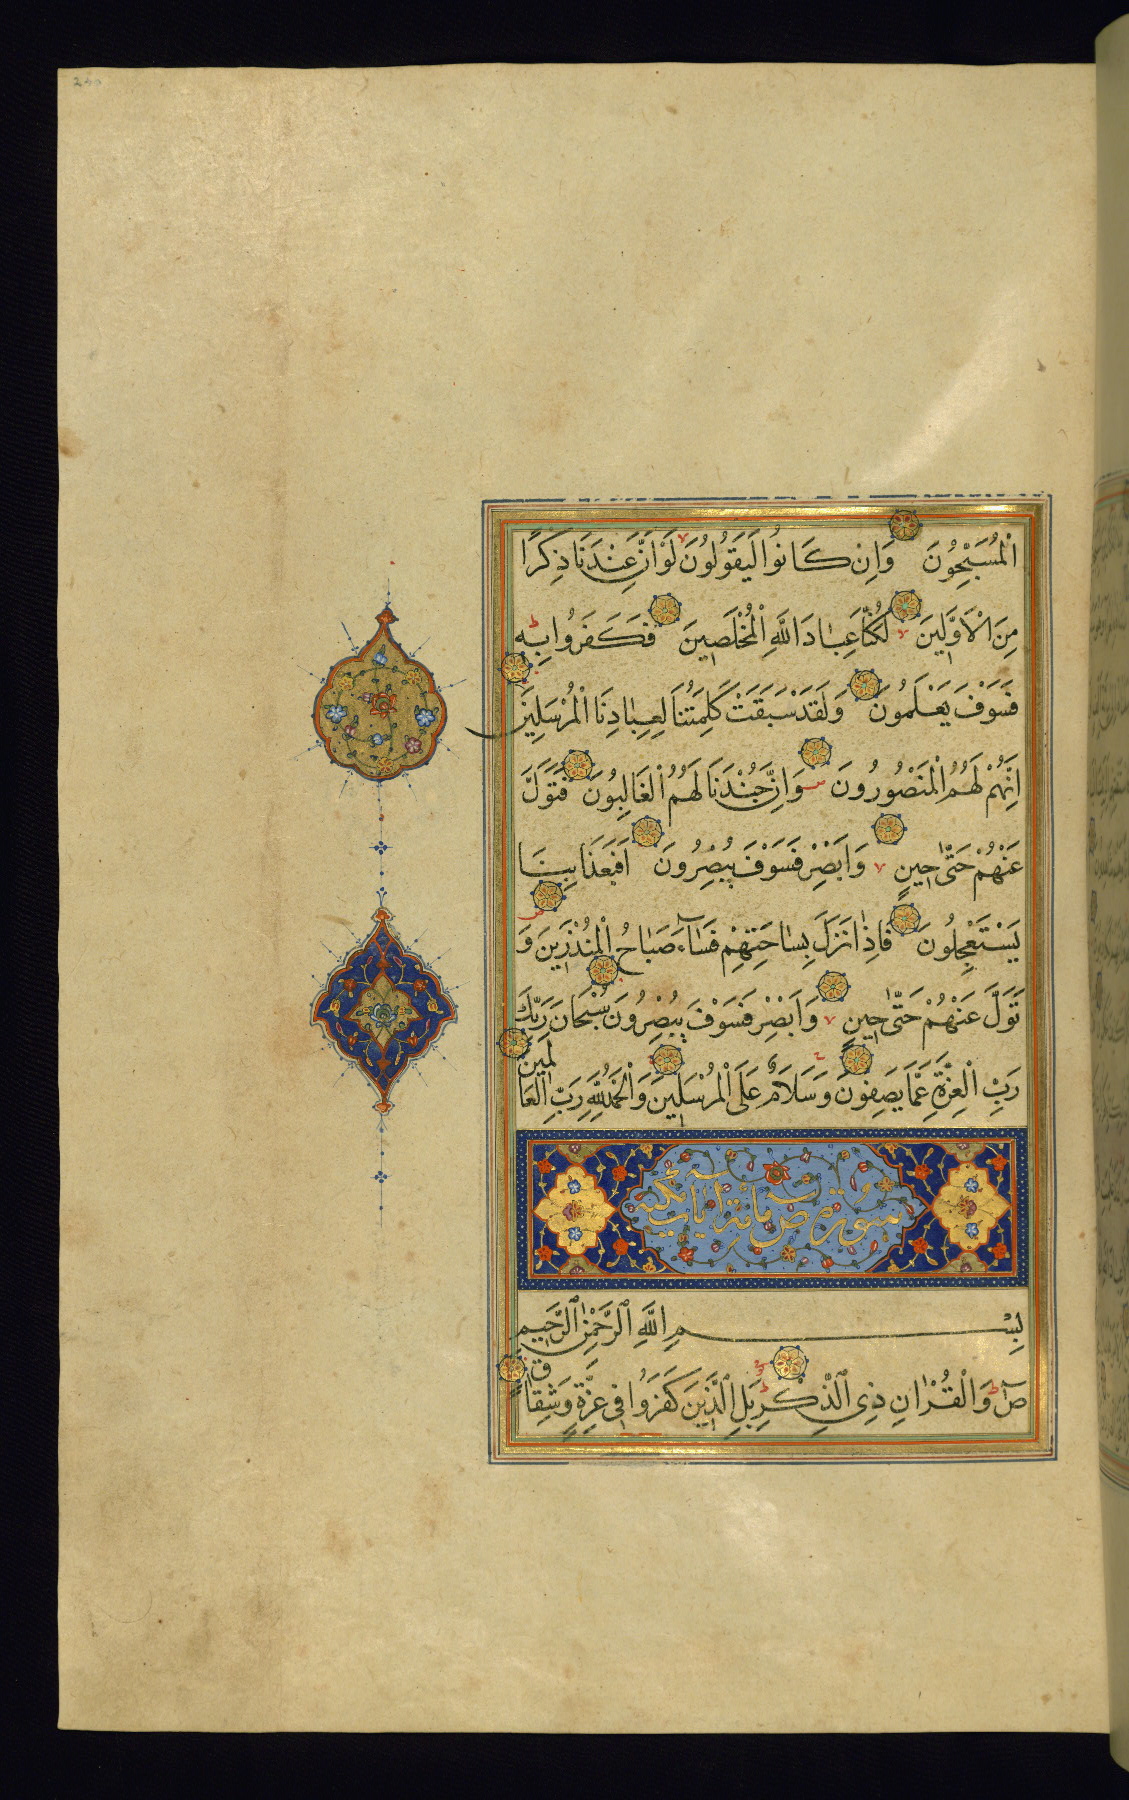 الْمُسَبِّحُونَ وَاِنْ كَانُوا لَيَقُولُونَ لَوْ اَنَّ عِنْدَنَا ذِكْرًا
مِنَ الْاَوَّلِينَ لَكُنَّا عِبَادَ اللَّهِ الْمُخْلَصِينَ فَكَفَرُوا بِهِ
فَسَوْفَ يَعْلَمُونَ وَلَقَدْ سَبَقَتْ كَلِمَتُنَا لِعِبَادِنَا الْمُرْسَلِينَ
اِنَّهُمْ لَهُمُ الْمَنْصُورُونَ وَاِنَّ جُنْدَنَا لَهُمُ الْغَالِبُونَ فَتَوَلَّ
عَنْهُمْ حَتّٰى حِينٍ وَاَبْصِرْ فَسَوْفَ يُبْصِرُونَ اَفَبِعَذَابِنَا
يَسْتَعْجِلُونَ فَاِذَا نَزَلَ بِسَاحَتِهِمْ فَسَآءَ صَبَاحُ الْمُنْذَرِينَ وَ
تَوَلَّ عَنْهُمْ حَتّٰى حِينٍ وَاَبْصِرْ فَسَوْفَ يُبْصِرُونَ سُبْحَانَ رَبِّكَ
رَبِّ الْعِزَّةِ عَمَّا يَصِفُونَ وَسَلَامٌ عَلَى الْمُرْسَلِينَ وَالْحَمْدُ لِلَّهِ رَبِّ الْعَالَمِينَ
سورة ص
بِسْمِ اللَّهِ الرَّحْمٰنِ الرَّحِيمِ
صٓ وَالْقُرْاٰنِ ذِى الذِّكْرِ بَلِ الَّذِينَ كَفَرُوا فِى عِزَّةٍ وَشِقَاقٍ